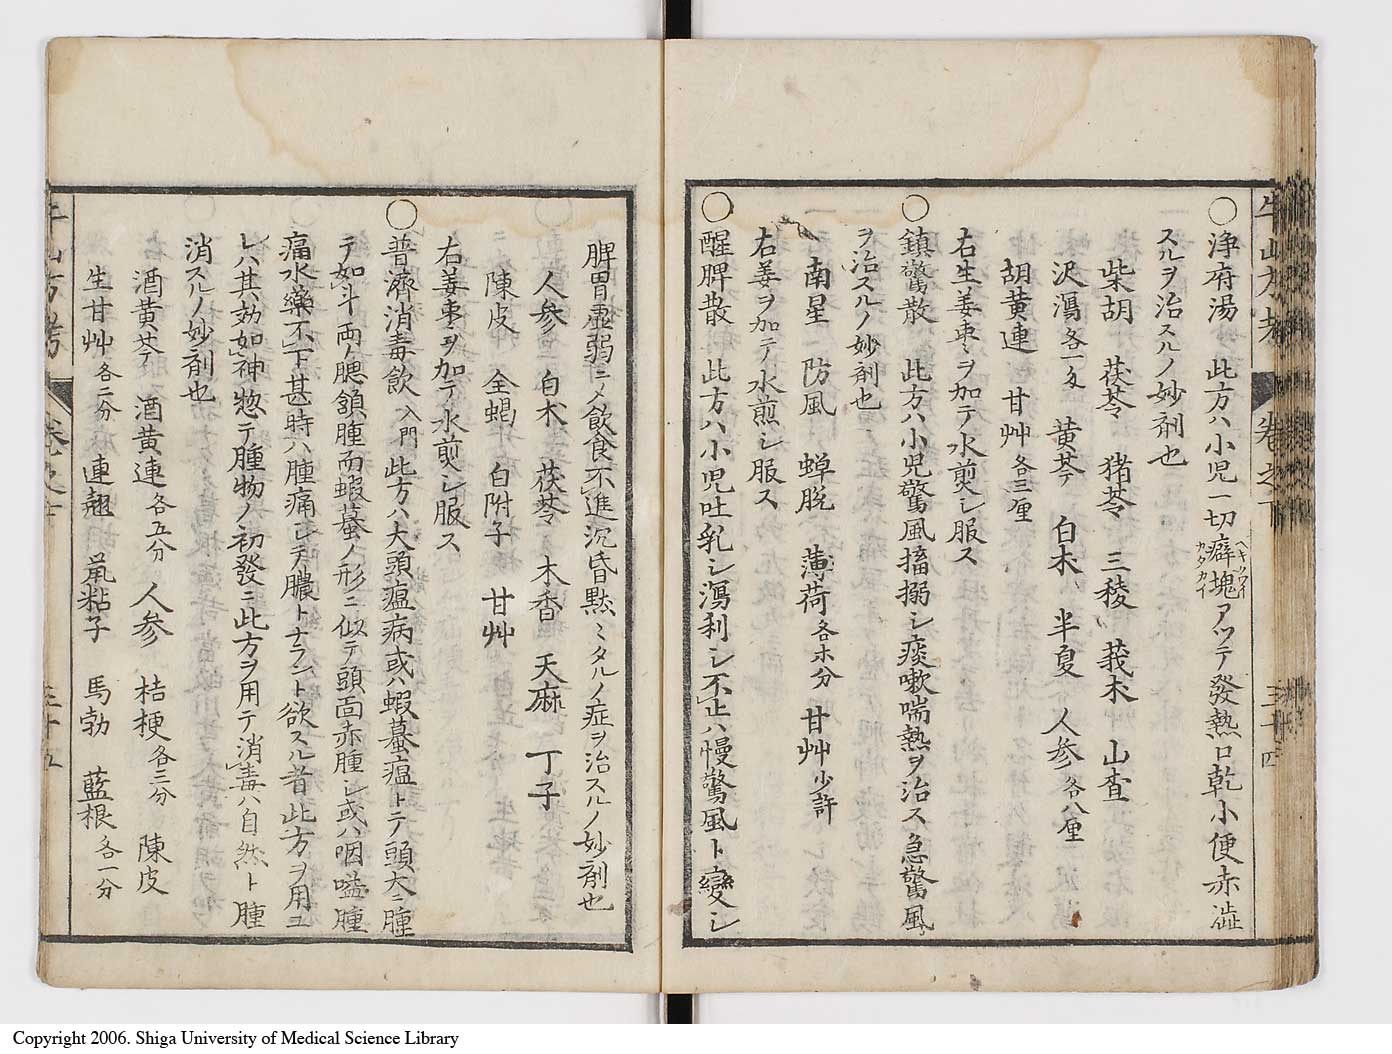 ○浄府湯 此方ハ小児一切癖塊アツテ發熱口乾小便赤澁
ヘキクワイ
カタカイ
スルヲ治スルノ妙剤也
柴胡 茯苓 猪苓 三稜 莪朮 山査
沢瀉各一匁 黄芩 白朮 半夏 人参各八厘
胡黄連 甘艸各三厘
右生姜棗ヲ加テ水煎シ服ス
○鎮驚散 此方ハ小児驚風搐搦シ痰嗽喘熱ヲ治ス急驚風
ヲ治スルノ妙剤也
南星 防風 蝉脱 薄荷各ホ分 甘艸少許
右姜ヲ加テ水煎シ服ス
○醒脾散 此方ハ小児吐乳シ瀉利シ不止ハ慢驚風ト變シ
牛山方考 卷之下 三十四
脾胃虚弱ニメ飲食不進沉昏黙ミタルノ症ヲ治スルノ妙剤也
人参 白朮 茯苓 木香 天麻 丁子
陳皮 全蝎 白附子 甘艸
右姜棗ヲ加テ水煎シ服ス
○普濟消毒飲 入門 此方ハ大頭瘟病或ハ蝦蟇瘟トテ頭大ニ腫
テ如斗両ノ腮頷腫而蝦蟇ノ形ニ似テ頭面赤腫シ或ハ咽嗌腫
痛水藥不下甚時ハ腫痛シテ膿トナラント欲スル者此方ヲ用ユ
レハ其効如神惣テ腫物ノ初發ニ此方ヲ用テ消毒ハ自然ト腫
消スルノ妙剤也
酒黄芩 酒黄連各五分 人参 桔梗各三分 陳皮
生甘艸各二分 連翹 鼠粘子 馬勃 藍根各一分
牛山方考 卷之下 三十五
Copyright 2006. Shiga University of Medical Science Library